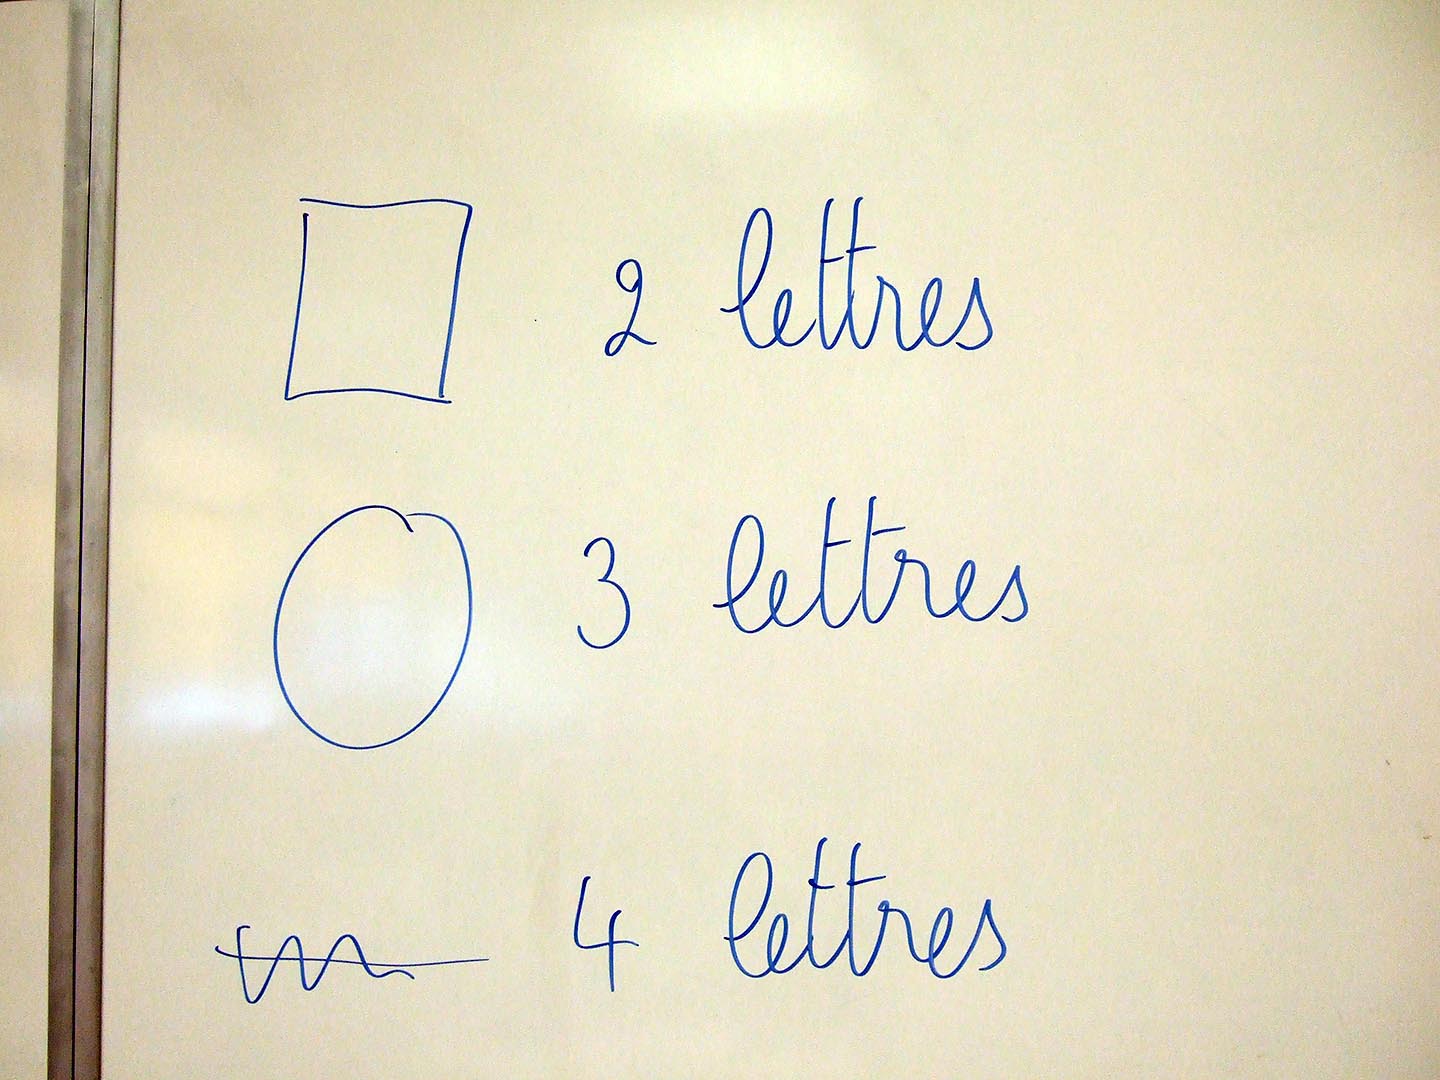 2 lettres
3 lettres
4 lettres